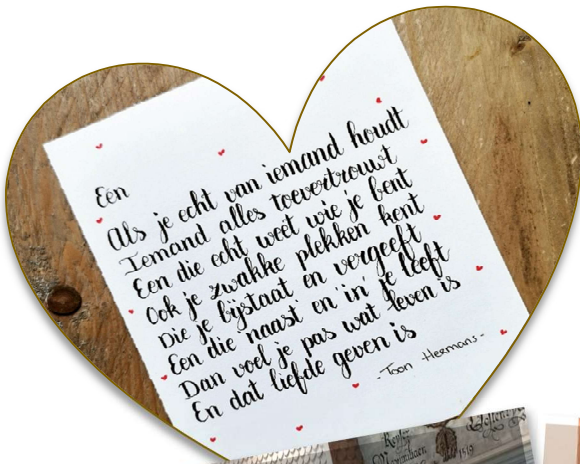 Eén
Als je echt van iemand houdt
Iemand alles toevertrouwt
Een die echt weet wie je bent
Ook je zwakke plekken kent
Die je bijstaat en vergeeft
Een die naast en in je leeft
Dan voel je pas wat leven is
En dat liefde geven is
-Toon Hermans-
1519